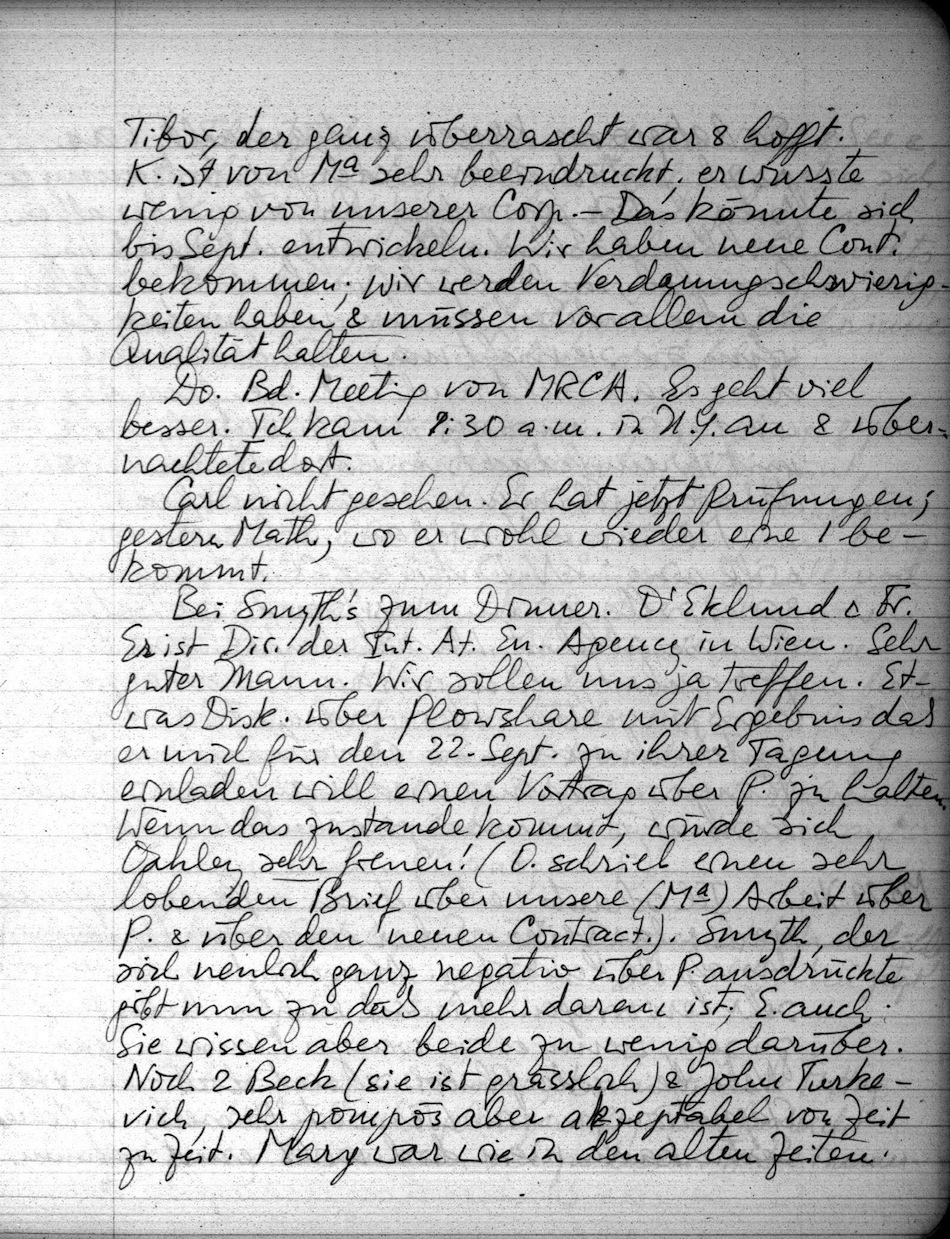 Tibor, der ganz überrascht war & hofft.
K. ist von Ma sehr beeindruckt, er wusste
wenig von unserer Corp. – Das könnte sich
bis Sept. entwickeln. Wir haben neue Cont.
bekommen; wir werden Verdauungschwierig-
keiten haben, & müssen vor allem die
Qualität halten.
Do. Bd. Meeting von MRCA. Es geht viel
besser. Ich kam 1:30 a.m. in N.Y. an & über-
nachtete dort.
Carl nicht gesehen. Er hat jetzt Prüfungen;
gestern Math, wo er wohl wieder eine 1 be-
kommt.
Bei Smyth's zum Dinner. Dr Eklund & Fr.
Er ist Dir. der Int. At. En. Agency in Wien. Sehr
guter Mann. Wir sollen uns ja treffen. Et-
was Disk. über Plowshare mit Ergebnis das
er mich für den 22. Sept. zu ihrer Tagung
einladen will einen Vortrag über P. zu halten
Wenn das zustande kommt, würde sich
Oakley sehr freuen! (O. schrieb einen sehr
lobenden Brief über unsere (Ma) Arbeit über
P. & über den neuen Contract.). Smyth, der
sich neulich ganz negativ über P. ausdrückte
gibt nun zu das mehr daran ist; E. auch.
Sie wissen aber beide zu wenig darüber.
Noch 2 Beck (sie ist grässlich) & John Turke-
vich, sehr pompös aber akzeptabel von Zeit
zu Zeit. Mary war wie in den alten Zeiten.